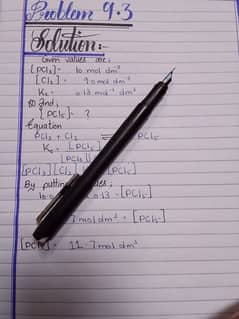 Problem 9.3
Solution:-
Given values are;
[PCl₃]= 10 mol dm⁻³
[Cl₂] = 9.0 mol dm⁻³
Kc = 0.13 mol⁻¹ dm³
To find;
[PCl₅]= ?
Equation
PCl₃ + Cl₂ ⇌ PCl₅
Kc = [PCl₅]
[PCl₃]
[PCl₃][Cl₂] [PCl₅]
By putting
0.13 = [PCl₅]
7 mol dm⁻³ = [PCl₅]
11.7 mol dm⁻³